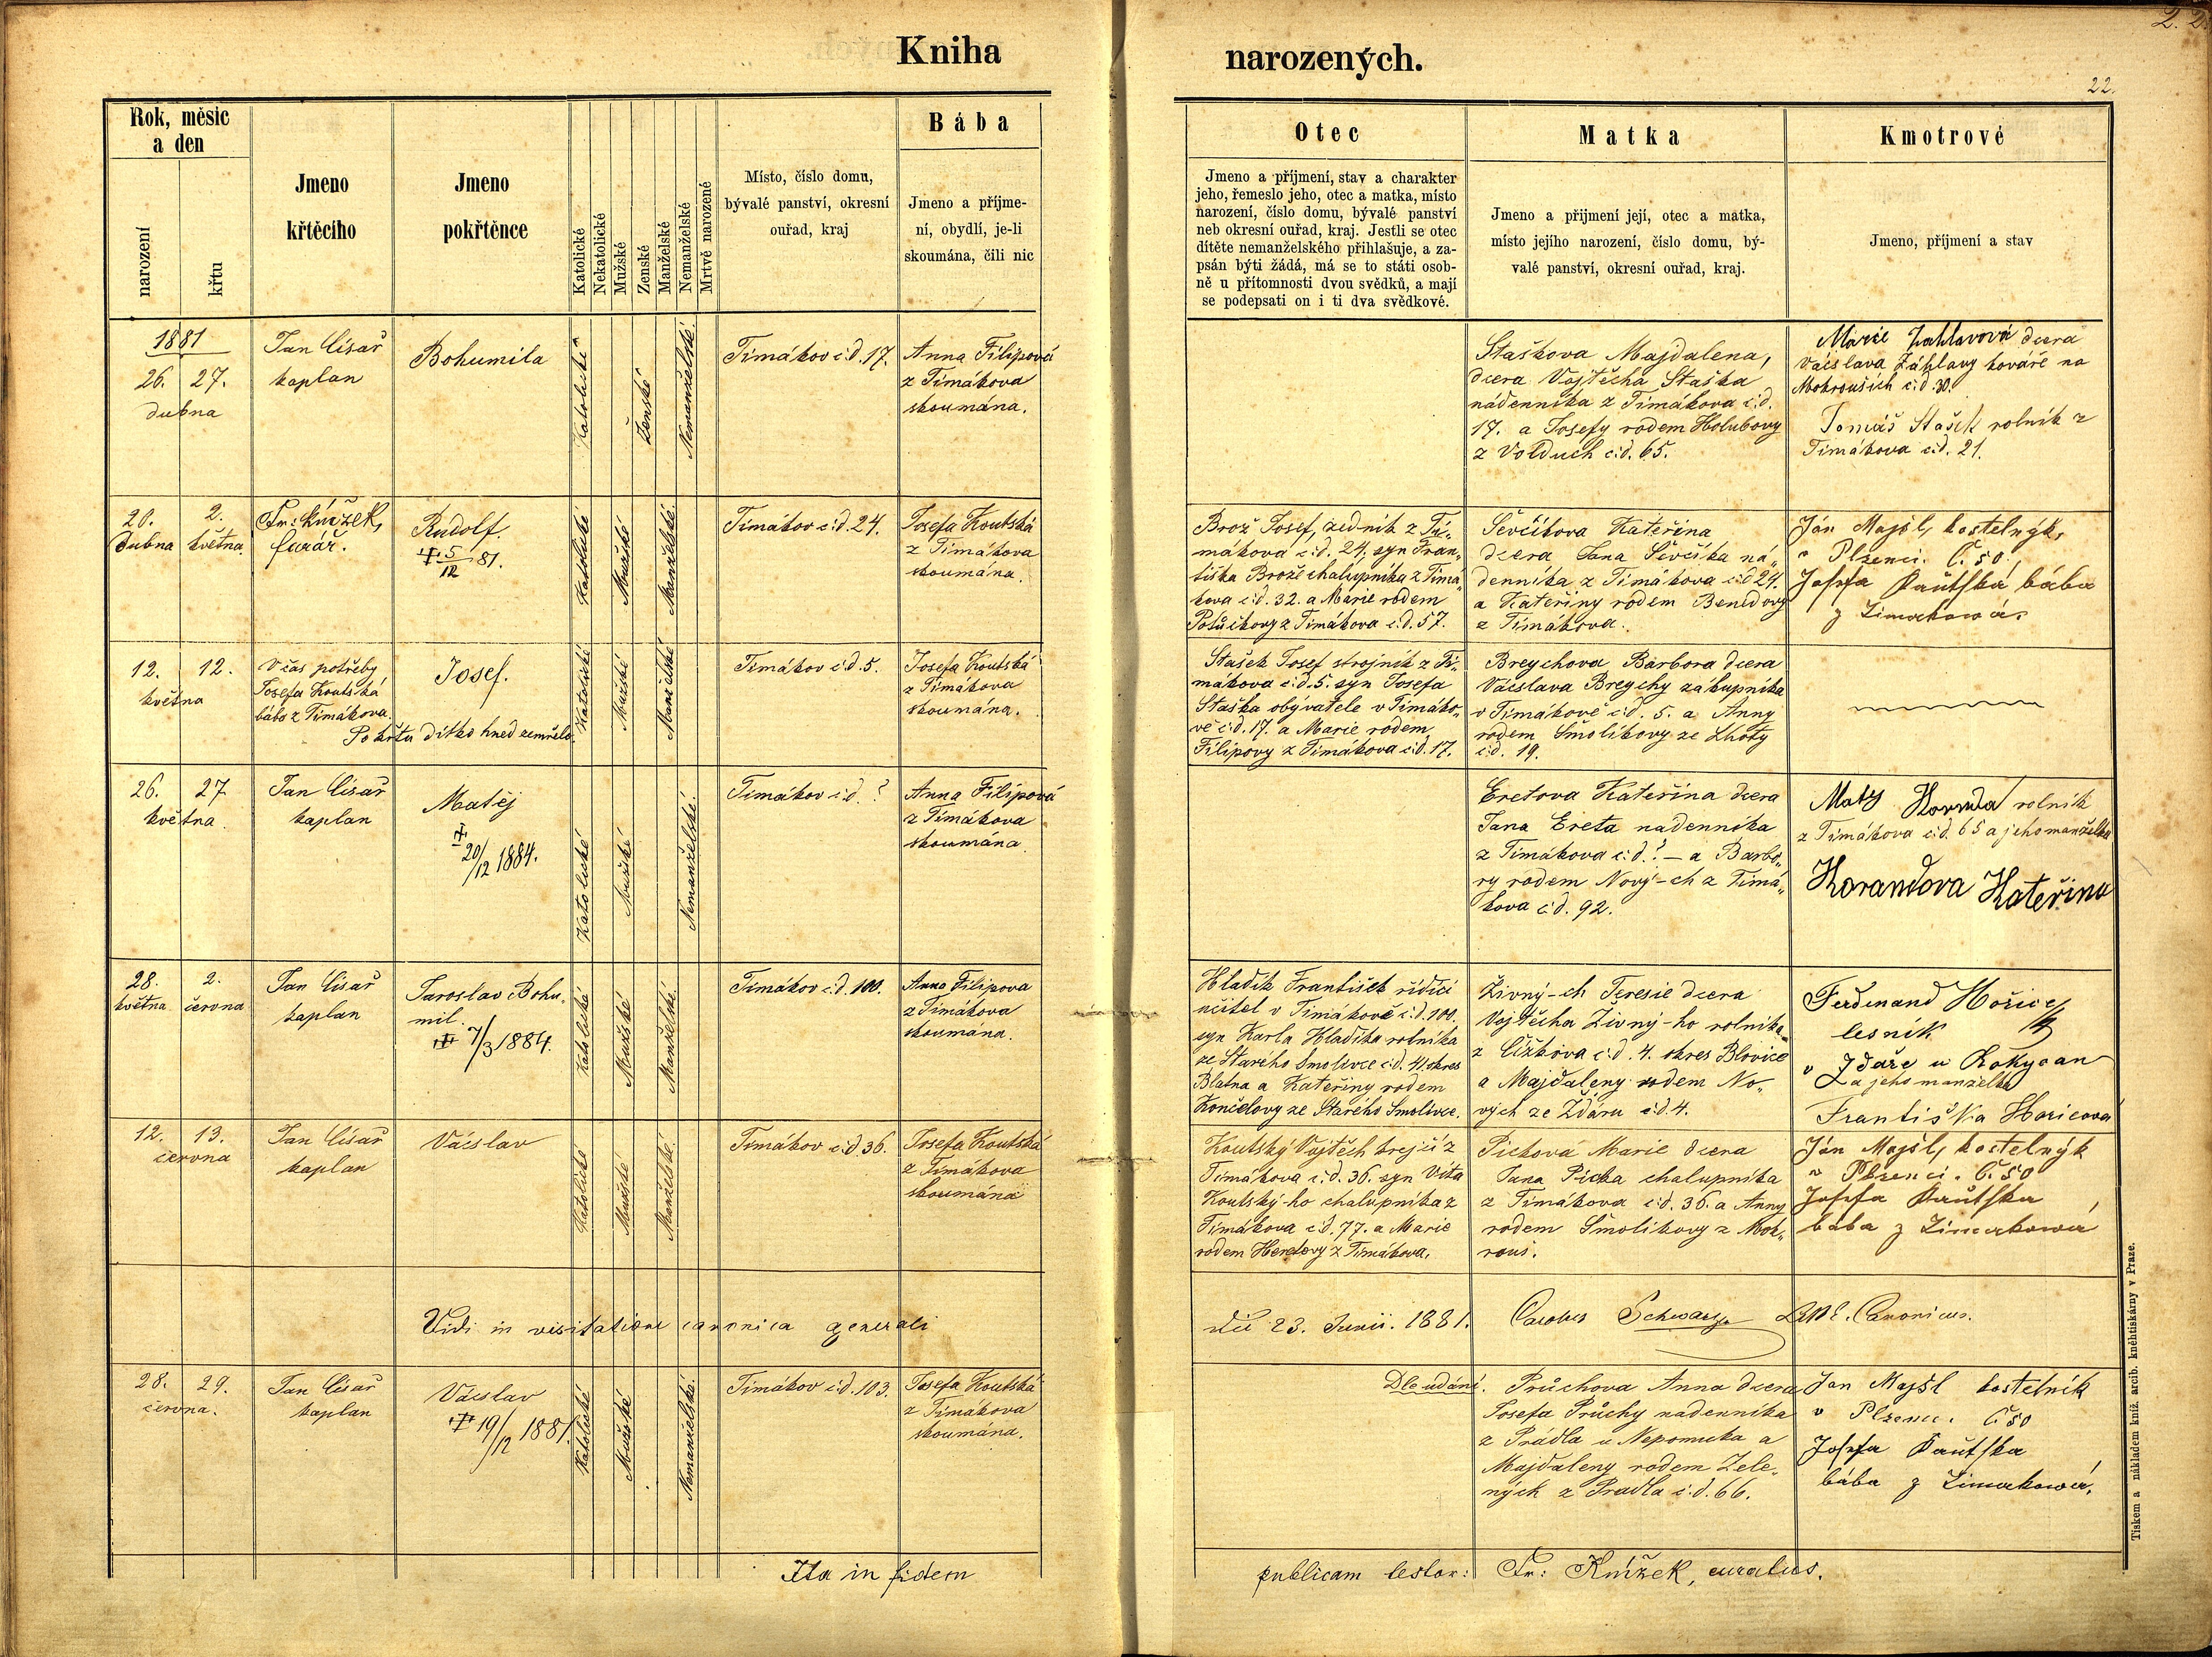 2. 2.
22.
Kniha narozených.
Rok, měsíc
a den
narození
křtu
Jmeno
křtěcího
Jmeno
pokřtěnce
Katolické
Nekatolické
Mužské
Zenské
Manželské
Nemanželské
Mrtvě narozené
Místo, číslo domu,
bývalé panství, okresní
ouřad, kraj
Bába
Jmeno a příjme-
ní, obydlí, je-li
skoumána, čili nic
Otec
Jmeno a příjmení, stav a charakter
jeho, řemeslo jeho, otec a matka, místo
narození, číslo domu, bývalé panství
neb okresní ouřad, kraj. Jestli se otec
dítěte nemanželského přihlašuje, a za-
psán býti žádá, má se to státi osob-
ně u přítomnosti dvou svědků, a mají
se podepsati on i ti dva svědkové.
Matka
Jmeno a přijmení její, otec a matka,
místo jejího narození, číslo domu, bý-
valé panství, okresní ouřad, kraj.
Kmotrové
Jmeno, příjmení a stav
1881
26. 27.
dubna
Jan Císař
kaplan
Bohumila
Katolické
Ženské
Nemanželské.
Timákov č.d. 17.
Anna Filipová
z Timákova
skoumána.
Staškova Majdalena,
dcera Vojtěcha Staška
nádenníka z Timákova č.d.
17. a Josefy rodem Holubovy
z Volduch č.d. 65.
Marie Zahlavová dcera
Václava Záhlavy kováře na
Mokrouších č.d. 30.
Tomáš Stašek rolník z
Timákova č.d. 21.
20. 2.
dubna května
Fr: Knížek,
farář.
Rudolf.
5/12 81.
Katolické
Mužské
Manželské.
Timákov č.d. 24.
Josefa Koutská
z Timákova
skoumána.
Brož Josef, zedník z Ti„
mákova č.d. 24. syn Fran„
tiška Brože chalupníka z Timá„
kova č.d. 32. a Marie rodem
Potůčkovy z Timákova č.d. 57.
Ševčíkova Kateřina
dcera Jana Ševčíka ná„
denníka z Timákova č.d 24.
a Kateřiny rodem Bendovy
z Timákova.
Ján Majšl, kostelnýk,
v Plzenci. Č. 50
Josefa Kautska bába
z Timakowa.
12. 12.
května
V čas potřeby
Josefa Koutská
bába z Timákova.
Po křtu dítko hned zemřelo.
Josef.
Katolické
Mužské
Manželské
Timákov č.d. 5.
Josefa Koutská
z Timákova
skoumána.
Stašek Josef strojník z Ti„
mákova č.d. 5. syn Josefa
Staška obyvatele v Timáko„
vě č.d. 17. a Marie rodem
Filipovy z Timákova č.d. 17.
Breychova Barbora dcera
Václava Breychy zákupníka
v Timákově č.d. 5. a Anny
rodem Smolíkovy ze Lhoty
č.d. 19.
26. 27
května.
Jan Císař
kaplan
Matěj
20/12 1884.
Katolické
Mužské
Nemanželské.
Timákov č.d. ?
Anna Filipová
z Timákova
skoumána.
Eretova Kateřina dcera
Jana Ereta nadenníka
z Timákova č.d. ? – a Barbo„
ry rodem Nový-ch z Timá„
kova č.d. 92.
Maty Koranda rolník
z Timákova č.d. 65 a jeho manželka
Korandova Kateřina
28. 2.
května června
Jan Císař
kaplan
Jaroslav Bohu„
mil.
7/3 1884.
Katolické
Mužské
Manželské.
Timákov č.d. 100.
Anna Filipova
z Timákova
skoumána.
Hladík František řídící
učitel v Timákově č.d. 100.
syn Karla Hladíka rolníka
ze Starého Smolivce č.d. 41. okres
Blatna a Kateřiny rodem
Končelovy ze Starého Smolivce.
Živný-ch Teresie dcera
Vojtěcha Živný-ho rolníka
z Čížkova č.d. 4. okres Blovice
a Majdaleny rodem No„
vých ze Ždáru č.d. 4.
Ferdinand Hořice
lesník
v Zdaře u Rokycan
a jeho manželka
Františka Horicova
12. 13.
června
Jan Císař
kaplan
Václav
Katolické
Mužské
Manželské.
Timákov č.d. 36.
Josefa Koutská
z Timákova
skoumána
Koutský Vojtěch krejčí z
Timákova č.d. 36. syn Víta
Koutský-ho chalupníka z
Timákova č.d. 77. a Marie
rodem Heretovy z Timákova.
Pickova Marie dcera
Jana Picka chalupníka
z Timákova č.d. 36. a Anny
rodem Smolíkovy z Mok„
rouš.
Ján Majšl, kostelnýk
v Plzenci. Č. 50
Josefa Kautska
bába z Timakowa
Vidi in visitatione canonica generali
die 23. Junii. 1881. Carolus Schwarz Canonicus.
28. 29.
června.
Jan Císař
kaplan
Václav
19/12 1881.
Katolické
Mužské
Nemanželské.
Timákov č.d. 103.
Josefa Koutská
z Timákova
skoumána.
Dle udání.
Průchova Anna dcera
Josefa Průchy nadenníka
z Prádla u Nepomuka a
Majdaleny rodem Zele„
ných z Pradla č.d. 66.
Jan Majšl kostelník
v Plzenci. Č 50
Josefa Kautska
bába z Timakowa.
Ita in fidem publicam testor: Fr: Knížek, curatus.
Tiskem a nákladem kníž. arcib. kněhtiskárny v Praze.